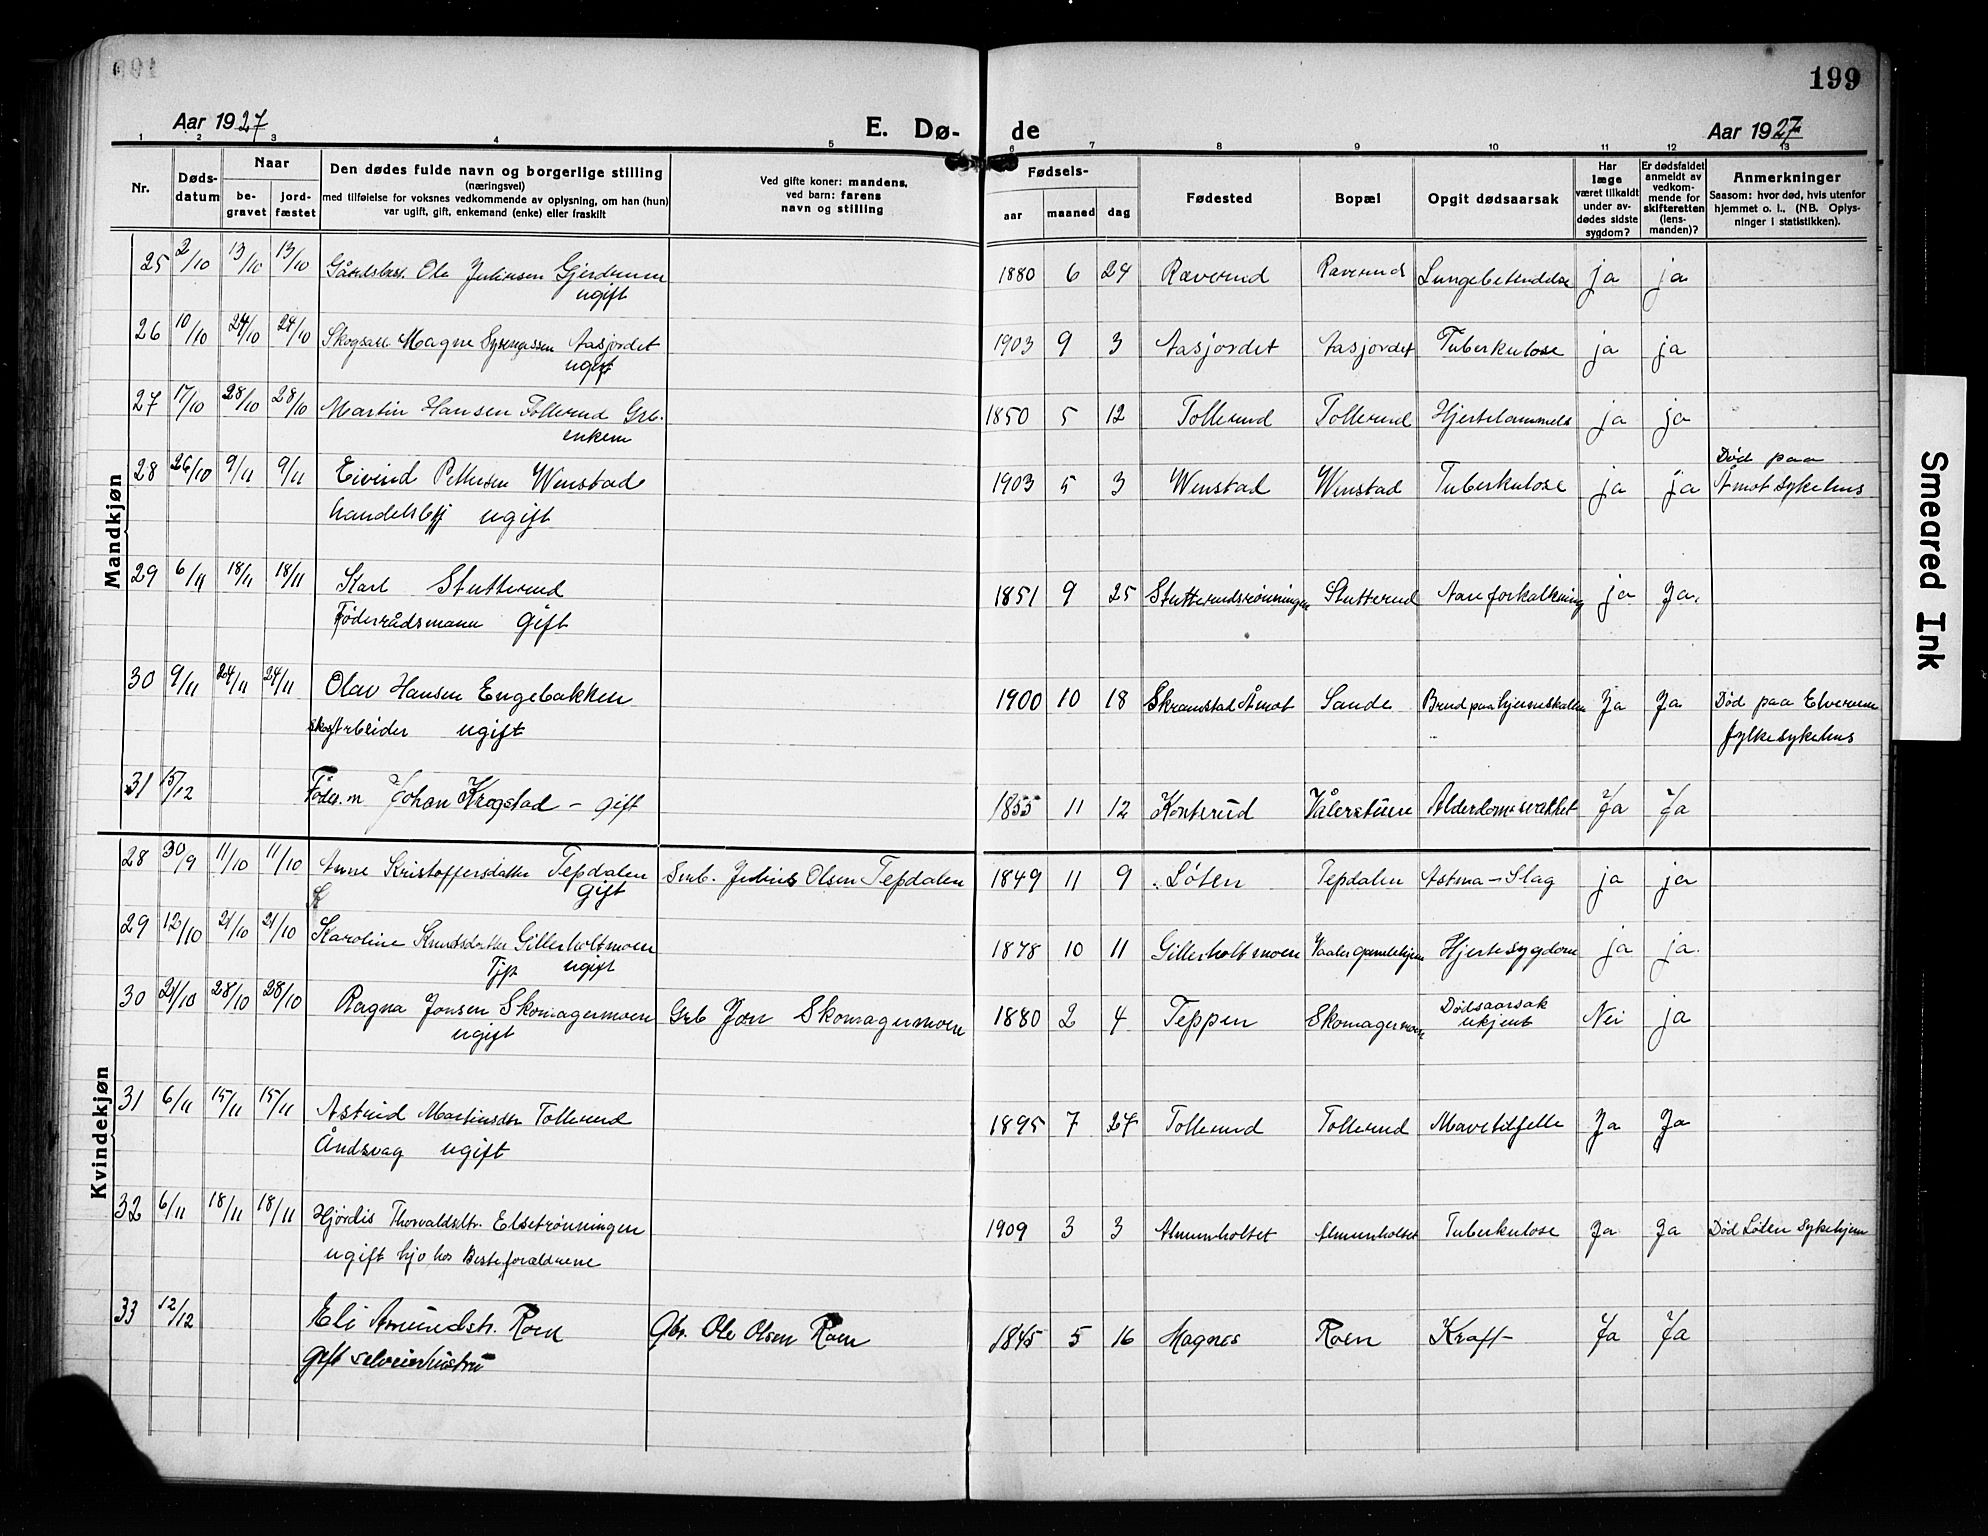 199
Aar 1927
E. Dø- de
Aar 1927
1 2 3 4 5 6 7 8 9 10 11 12 13
Nr.
Døds-
datum
Naar
be-
gravet
jord-
fæstet
Den dødes fulde navn og borgerlige stilling
(næringsvei)
med tilføielse for voksnes vedkommende av oplysning, om han (hun)
var ugift, gift, enkemand (enke) eller fraskilt
Ved gifte koner: mandens,
ved barn: farens
navn og stilling
Fødsels-
aar maaned dag
Fødested
Bopæl
Opgit dødsaarsak
Har
læge
været tilkaldt
under av-
dødes sidste
sygdom?
Er dødsfaldet
anmeldt av
vedkom-
mende for
skifteretten
(lens-
manden)?
Anmerkninger
Saasom: hvor død, hvis utenfor
hjemmet o. l., (NB. Oplys-
ninger i statistikken).
Mandkjøn
25 2/10 13/10 13/10 Ole Juliusen 1880 6 24 Raverud Raverud Lungebetendelse ja ja
ugift
26 10/10 24/10 24/10 Magne Aasjordet 1903 9 3 Aasjordet Aasjordet Tuberkulose ja ja
ugift
27 17/10 28/10 28/10 Martin Hansen Tollerud Grb. 1850 5 12 Tollerud Tollerud Hjertelammels ja ja
enkem
28 26/10 9/11 9/11 Eivind Pettersen Wenstad 1903 5 3 Wenstad Wenstad Tuberkulose ja ja Død paa
Åmot sykehus
handelsbtj ugift
29 6/11 18/11 18/11 Karl Stutterud 1851 9 25 Stutterudsrønningen Stutterud Aareforkalkning ja Ja.
Føderådsmann gift
30 9/11 24/11 24/11 Olav Hansen Engebakken 1900 10 18 Skramstad Åmot Sande Brud paa hjerneskallen Ja Ja Død paa Elverum
fylkesykehus
skogarbeider ugift
31 15/12 Føder.m Johan Krogstad - gift 1855 11 12 Konterud Vålerstuen Alderdomssvakhet Ja Ja
Kvindekjøn
28 30/9 11/10 11/10 Anne Kristoffersdatter Tepdalen Smb. Julius Olsen Tepdalen 1849 11 9 Løten Tepdalen Astma - Slag ja ja
gift
29 12/10 21/10 21/10 Karoline Knudsdatter Gillerholtmoen 1878 10 11 Gillerholtmoen Vaaler gamlehjem Hjertesygdom ja ja.
Tjp ugift
30 21/10 28/10 28/10 Ragna Jonsen Skomagermoen Grb Jon Skomagermoen 1880 2 4 Teppen Skomagermoen Dødsaarsak
ukjent Nei ja
ugift
31 6/11 15/11 15/11 Astrid Martinsdtr Tollerud 1895 7 27 Tollerud Tollerud Mavetilfelle Ja Ja
Åndsvag ugift
32 6/11 18/11 18/11 Hjørdis Thorvaldsdtr. Elsetrønningen 1909 3 3 Almunholset Almunholset Tuberkulose Ja Ja Død Løten Sykehjem
ugift hjv hos Besteforældrene
33 12/12 Eli Amundstr. Roen Gbr. Ole Olsen Roen 1845 5 16 Magnes Roen Kræft Ja Ja
gift selveierhustru
Smeared Ink